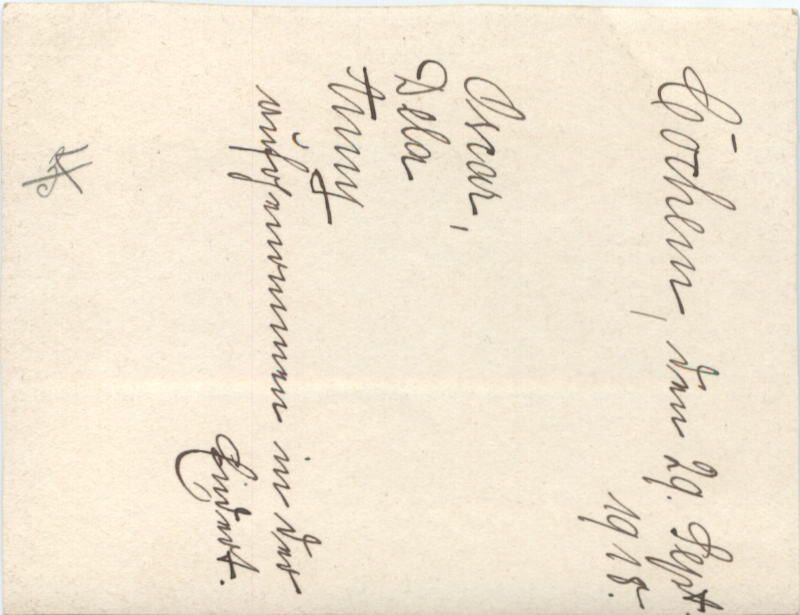 Cochem, den 29. Sept.
1918.
Oscar,
Dela
Anny
aufgenommen in der
Endert.